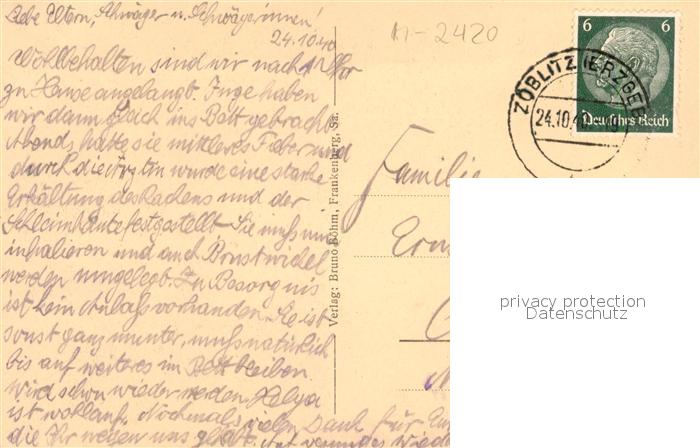 Liebe Eltern, Schwäger u. Schwägerinnen!
24.10.40
Wohlbehalten sind wir nach 1 Uhr
zu Hause angelangt. Inge haben
wir dann gleich ins Bett gebracht.
Abends hatte sie mittleres Fieber und
durch die Ärztin wurde eine starke
Erkältung des Rachens und der
Schleimhäute festgestellt. Sie muß nun
inhalieren und auch Brustwickel
werden umgelegt. Zu Besorgnis
ist kein Anlaß vorhanden. Sie ist
sonst ganz munter, muß natürlich
bis auf weiteres im Bett bleiben.
Wird schon wieder werden. Helga
ist wohlauf. Nochmals vielen Dank für
die Ihr wegen uns
n-2420
6 6
Deutsches Reich
ZÖBLITZ (ERZGEB
24.10.4
Familie
Verlag: Bruno Böhm, Frankenberg, Sa.
privacy protection
Datenschutz